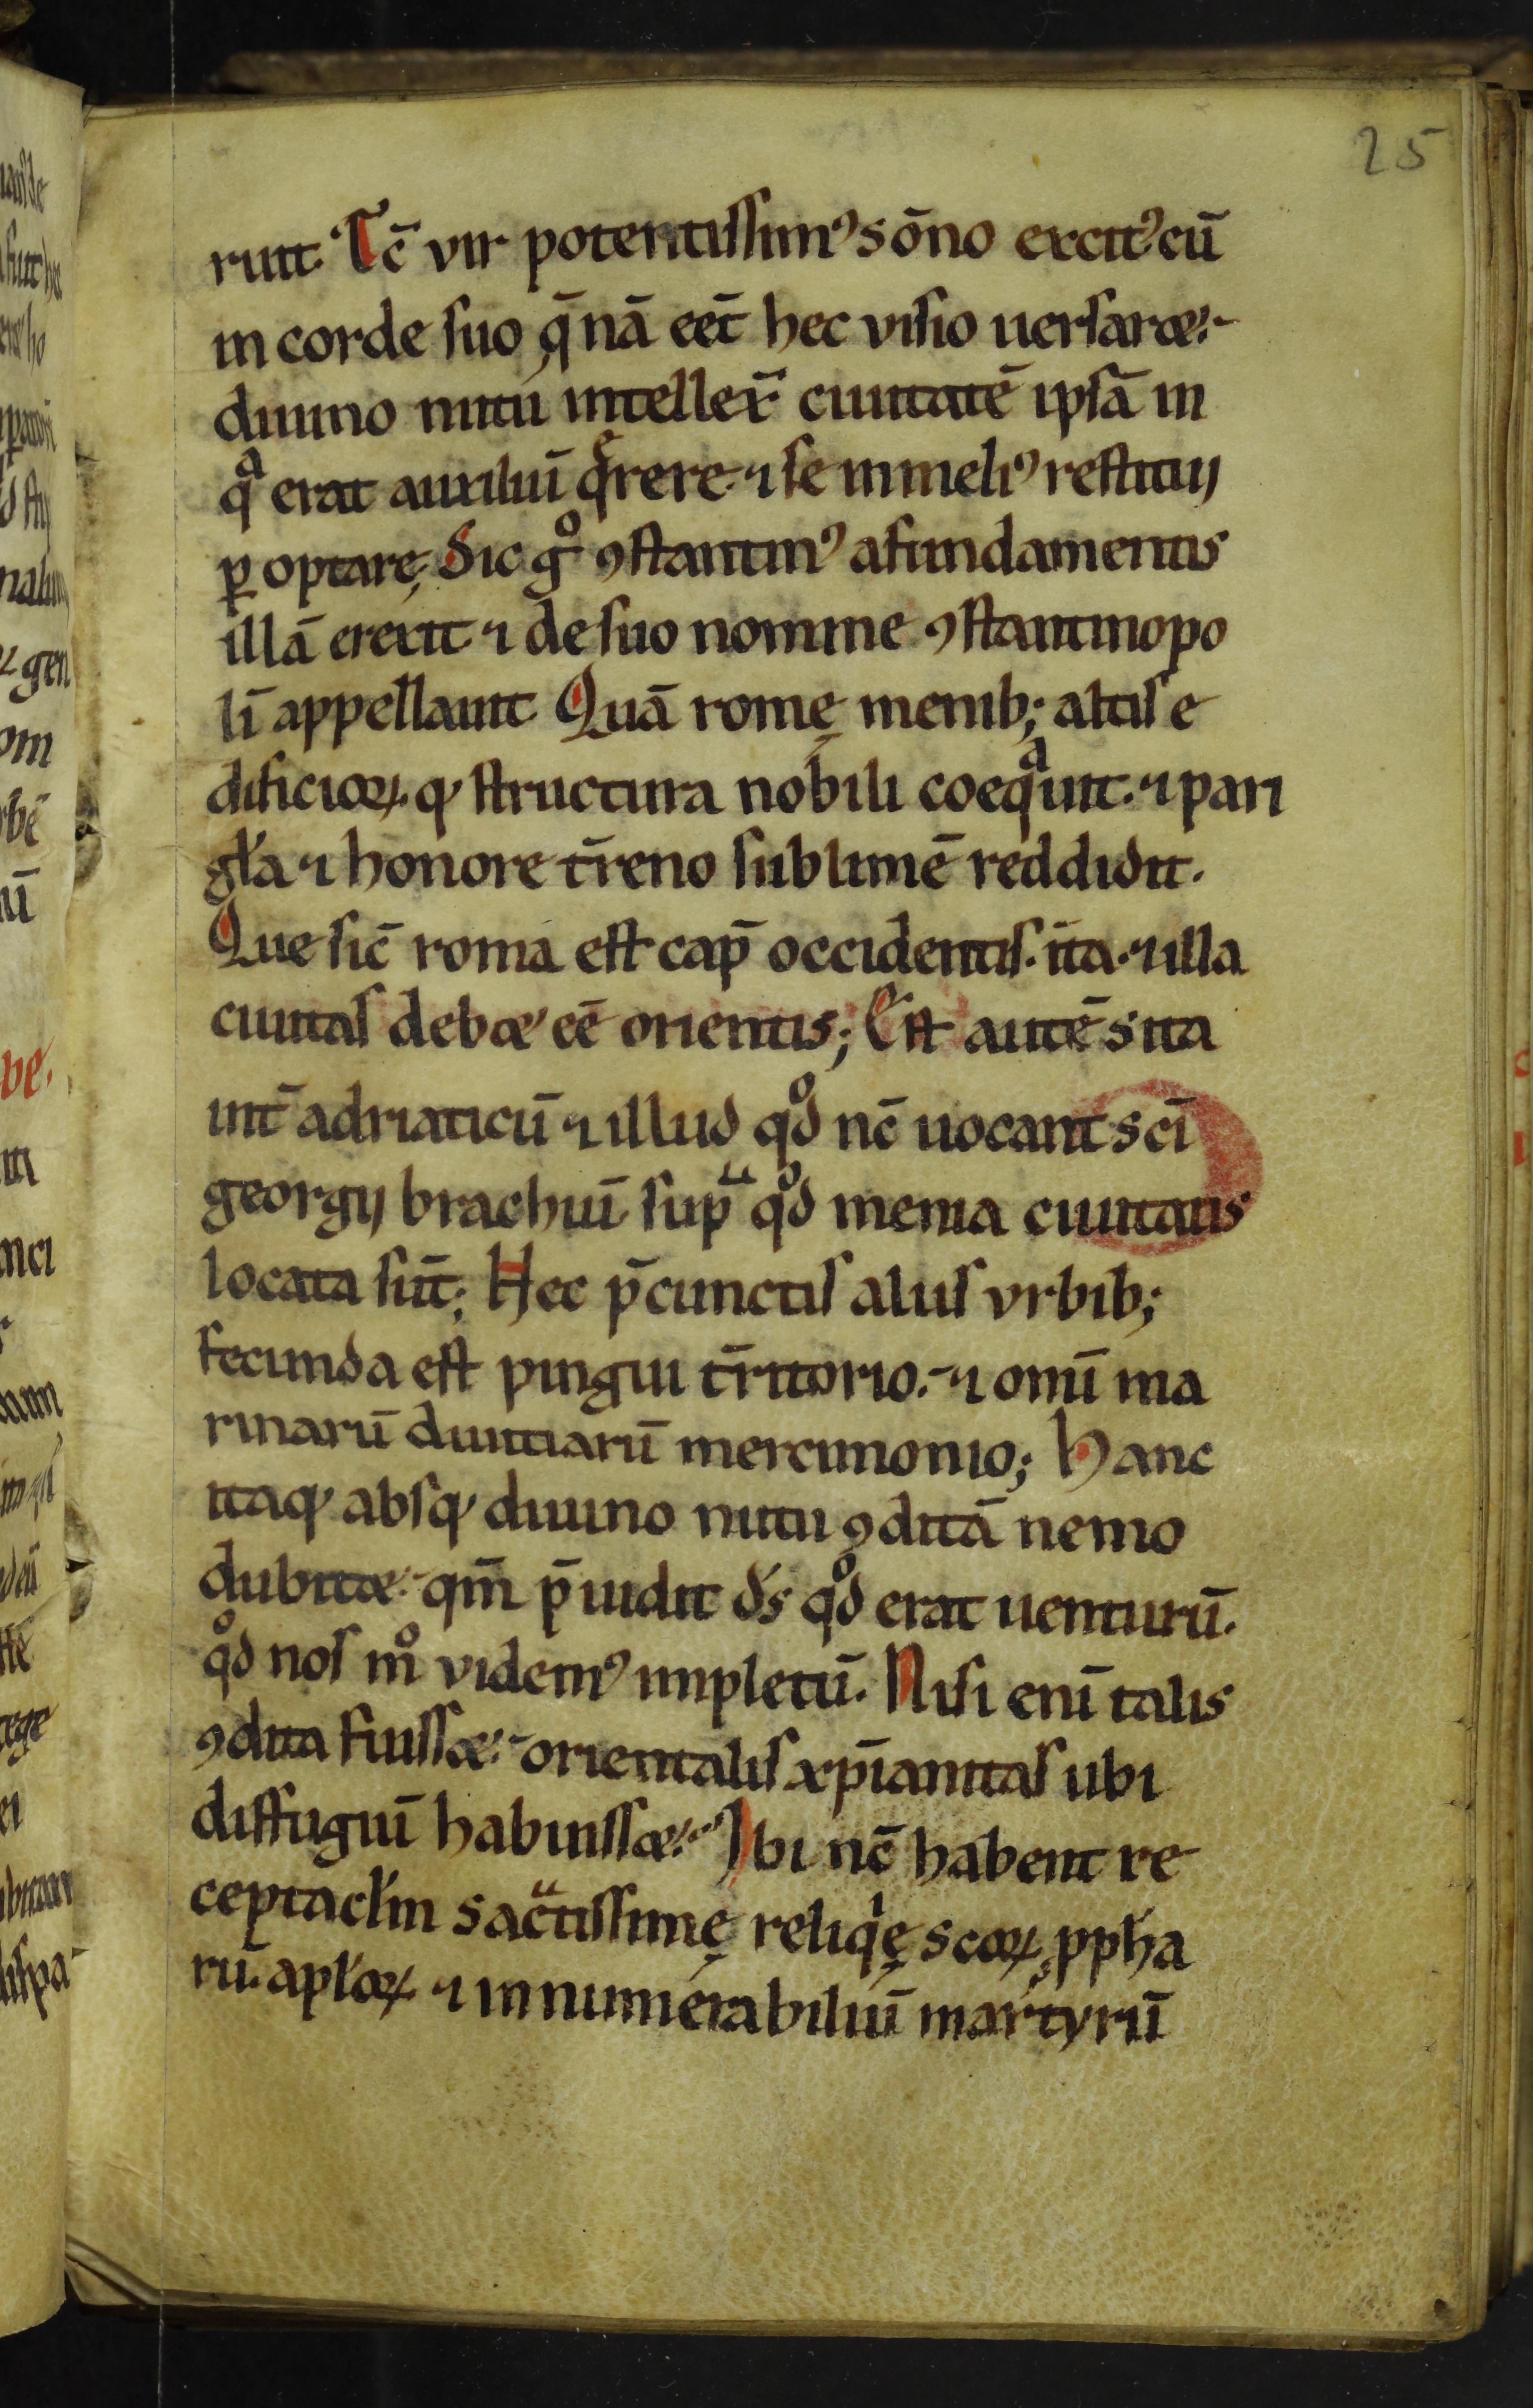 25
runt. Tc̄ vir potentissimꝰ sōno excitꝰ cū
in corde suo q̄nā eēt hec visio uersaret.
diuino nutu intellex̄ ciuitatē ipsā in
qͣ erat auxiliū q̄rere. ⁊ se in meliꝰ restitui
ꝑ optare, Sic gͦ ꝯstantinꝰ a fundamentis
illā erexit ⁊ de suo nomine ꝯstantinopo
lī appellauit Quā romę menib; altis e
dificioꝝ. qꝫ structura nobili coeqͣuit. ⁊ pari
gl̄a ⁊ honore t̄reno sublimē reddidit.
Que sic̄ roma est cap̄ occidentis. ita. ⁊ illa
ciuitas debet eē orientis; Est autē sita
int̄ adriaticū ⁊ illud qͦd nc̄ uocant sc̄i
georgij brachiū. supͣ qͦd menia ciuitatis
locata sūt; Hec p̄ cunctis aliis vrbib;
fecunda est pingui t̄ritorio. ⁊ omī ma
rinarū diuitiarū mercimonio; Hanc
itaqꝫ absqꝫ diuino nutu ꝯditā nemo
dubitet. qm̄ p̄uidit ds̄ qͦd erat uenturū.
qͦd nos mͦ videmꝰ impletū. Nisi enī talis
ꝯdita fuisset. orientalis xp̄ianitas ubi
diffugiū habuisset. Ibi nc̄ habent re
ceptaclm̄ sac̄tissimę reliqͥę sc̄oꝝ, pph̄a
rū. apl̄oꝝ ⁊ innumerabiliū martyrū